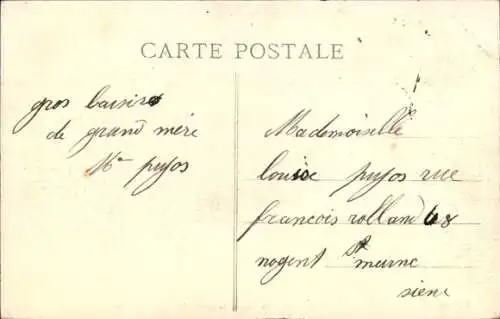 CARTE POSTALE
gros baisirs
de grand mère
Mme pujos
Mademoiselle
louise pujos rue
francois rolland 68
nogent St
murne
siene